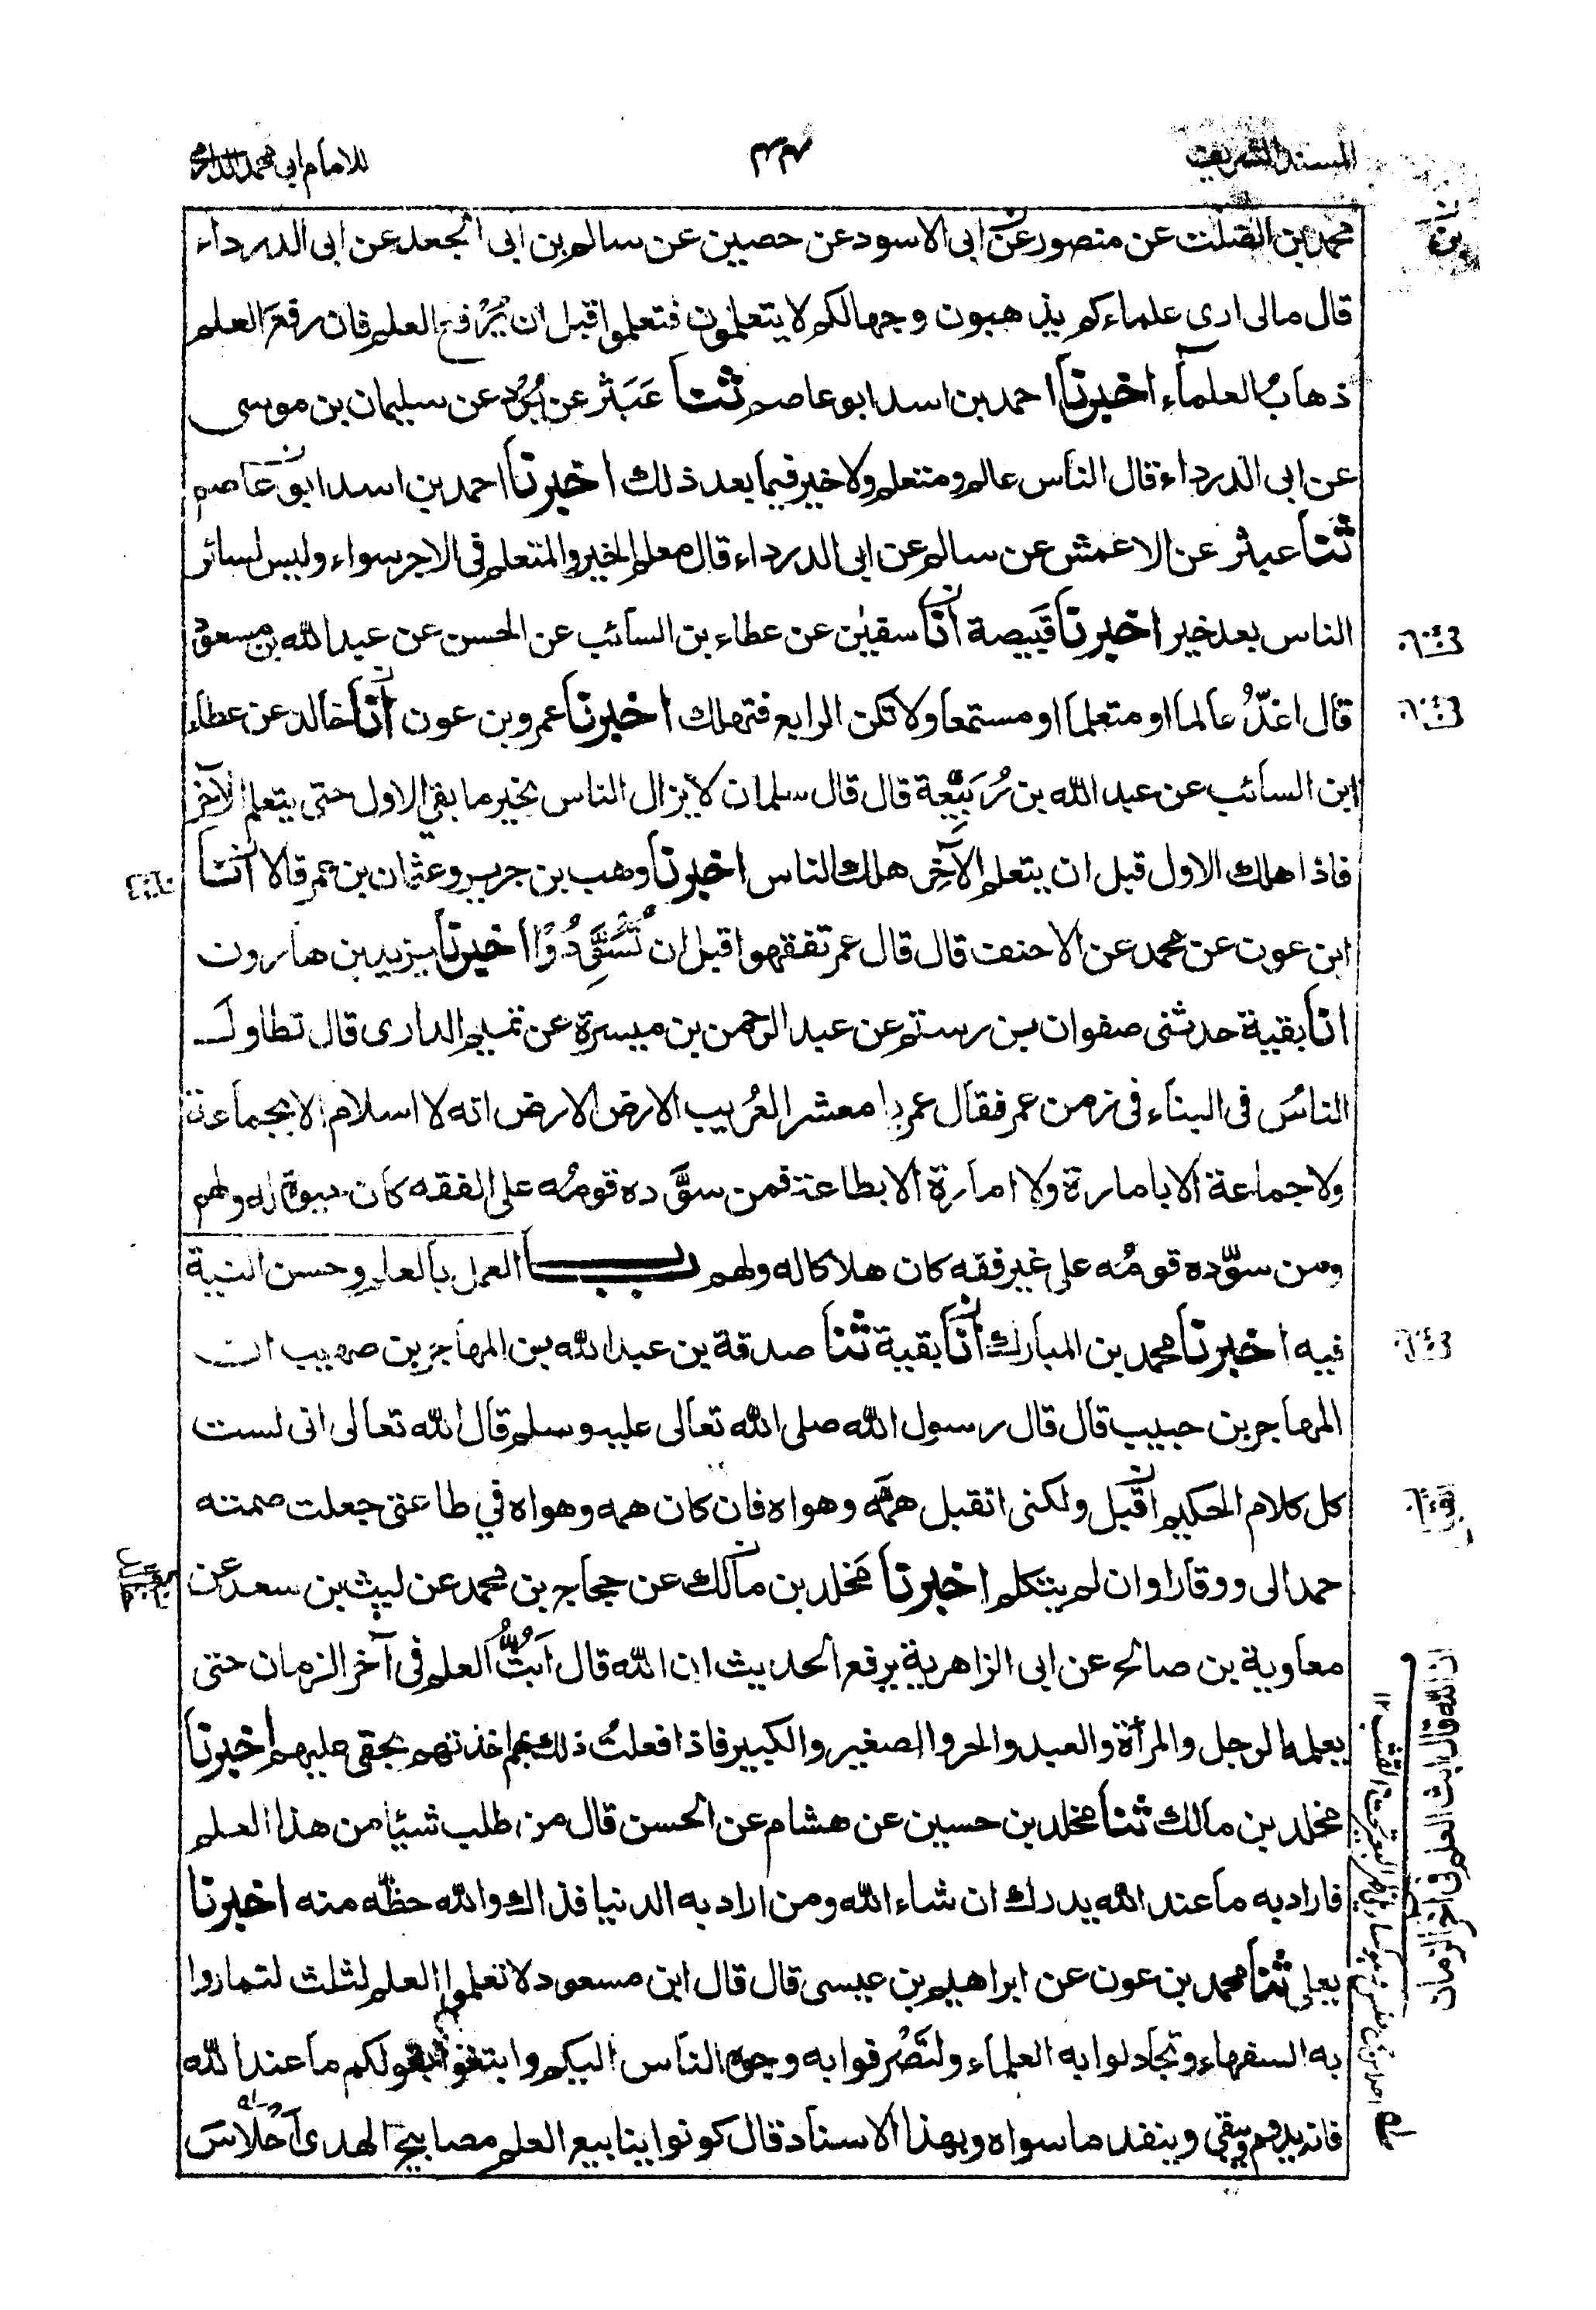 المسند الشريف
٤٤
للامام ابى محمد الدارمى
محمد بن الصلت عن منصور عن ابى الاسود عن حصين عن سالم بن ابى الجعد عن ابى الدرداء
قال مالى ارى علماءكم يذهبون وجهالكم لا يتعلمون فتعلموا قبل ان يُرْفع العلم فان رفعَ العلم
ذهابُ العلماء اخبرنا احمد بن اسد ابو عاصم ثنا عَبَثَر عن بُرْد عن سليمان بن موسى
عن ابى الدرداء قال الناس عالم ومتعلم ولا خير فيما بعد ذلك اخبرنا احمد بن اسد ابو عاصم
ثنا عبثر عن الاعمش عن سالم عن ابى الدرداء قال معلم الخير والمتعلم فى الاجر سواء وليس لسائر
الناس بعد خير اخبرنا قَبيصة انا سفيٰن عن عطاء بن السائب عن الحسن عن عبد الله بن مسعود
قال اغدُ عالما او متعلما او مستمعا ولا تكن الرابع فتهلك اخبرنا عمرو بن عون انا خالد عن عطاء
ابن السائب عن عبد الله بن رُبَيّعة قال قال سلمان لا يزال الناس بخير ما بقى الاول حتى يتعلم الآخر
فاذا هلك الاول قبل ان يتعلم الآخِر هلك الناس اخبرنا وهب بن جرير وعثمان بن عمر قالا انا
ابن عون عن محمد عن الاحنف قال قال عمر تفقهوا قبل ان تُسَوَّدُوْا اخبرنا يزيد بن هارون
انا بقية حدثنى صفوان بن رستم عن عبد الرحمن بن ميسرة عن تميم الدارى قال تطاول
الناسُ فى البناء فى زمن عمر فقال عمر يا معشر العُريب الارض الارض انه لا اسلام الا بجماعة
ولا جماعة الا بامارة ولا امارة الا بطاعة فمن سوَّده قومُه على الفقه كان حيوة له ولهم
ومن سوّده قومُه على غير فقه كان هلاكا له ولهم باب العمل بالعلم وحسن النية
فيه اخبرنا محمد بن المبارك انا بقية ثنا صدقة بن عبد الله بن المهاجر بن صهيب ان
المهاجر بن حبيب قال قال رسول الله صلى الله تعالى عليه وسلم قال الله تعالى انى لست
كل كلام الحكيم اقبل ولكنى اتقبل همَّه وهواه فان كان همه وهواه في طاعتى جعلت صمته
حمدا لى ووقارا وان لم يتكلم اخبرنا مَخلد بن مالك عن حجاج بن محمد عن ليث بن سعد عن
معاوية بن صالح عن ابى الزاهرية يرفع الحديث ان الله قال اَبُثُّ العلم فى آخر الزمان حتى
يعلمه الرجل والمرأة والعبد والحر والصغير والكبير فاذا فعلتُ ذلك بهم اخذتهم بحقى عليهم اخبرنا
مخلد بن مالك ثنا مخلد بن حسين عن هشام عن الحسن قال من طلب شيئا من هذا العلم
فاراد به ما عند الله يدرك ان شاء الله ومن اراد به الدنيا فذاك والله حظّه منه اخبرنا
يعلى ثنا محمد بن عون عن ابراهيم بن عيسى قال قال ابن مسعود لا تعلموا العلم لثلث لتماروا
به السفهاء وتجادلوا به العلماء ولتَصْرفوا به وجوه الناس اليكم وابتغوا بقولكم ما عند الله
فانه يدوم ويبقى وينفد ما سواه وبهذا الاسناد قال كونوا ينابيع العلم مصابيح الهدى اَحْلاسَ
ان الله قال ابث العلم فى آخر الزمان